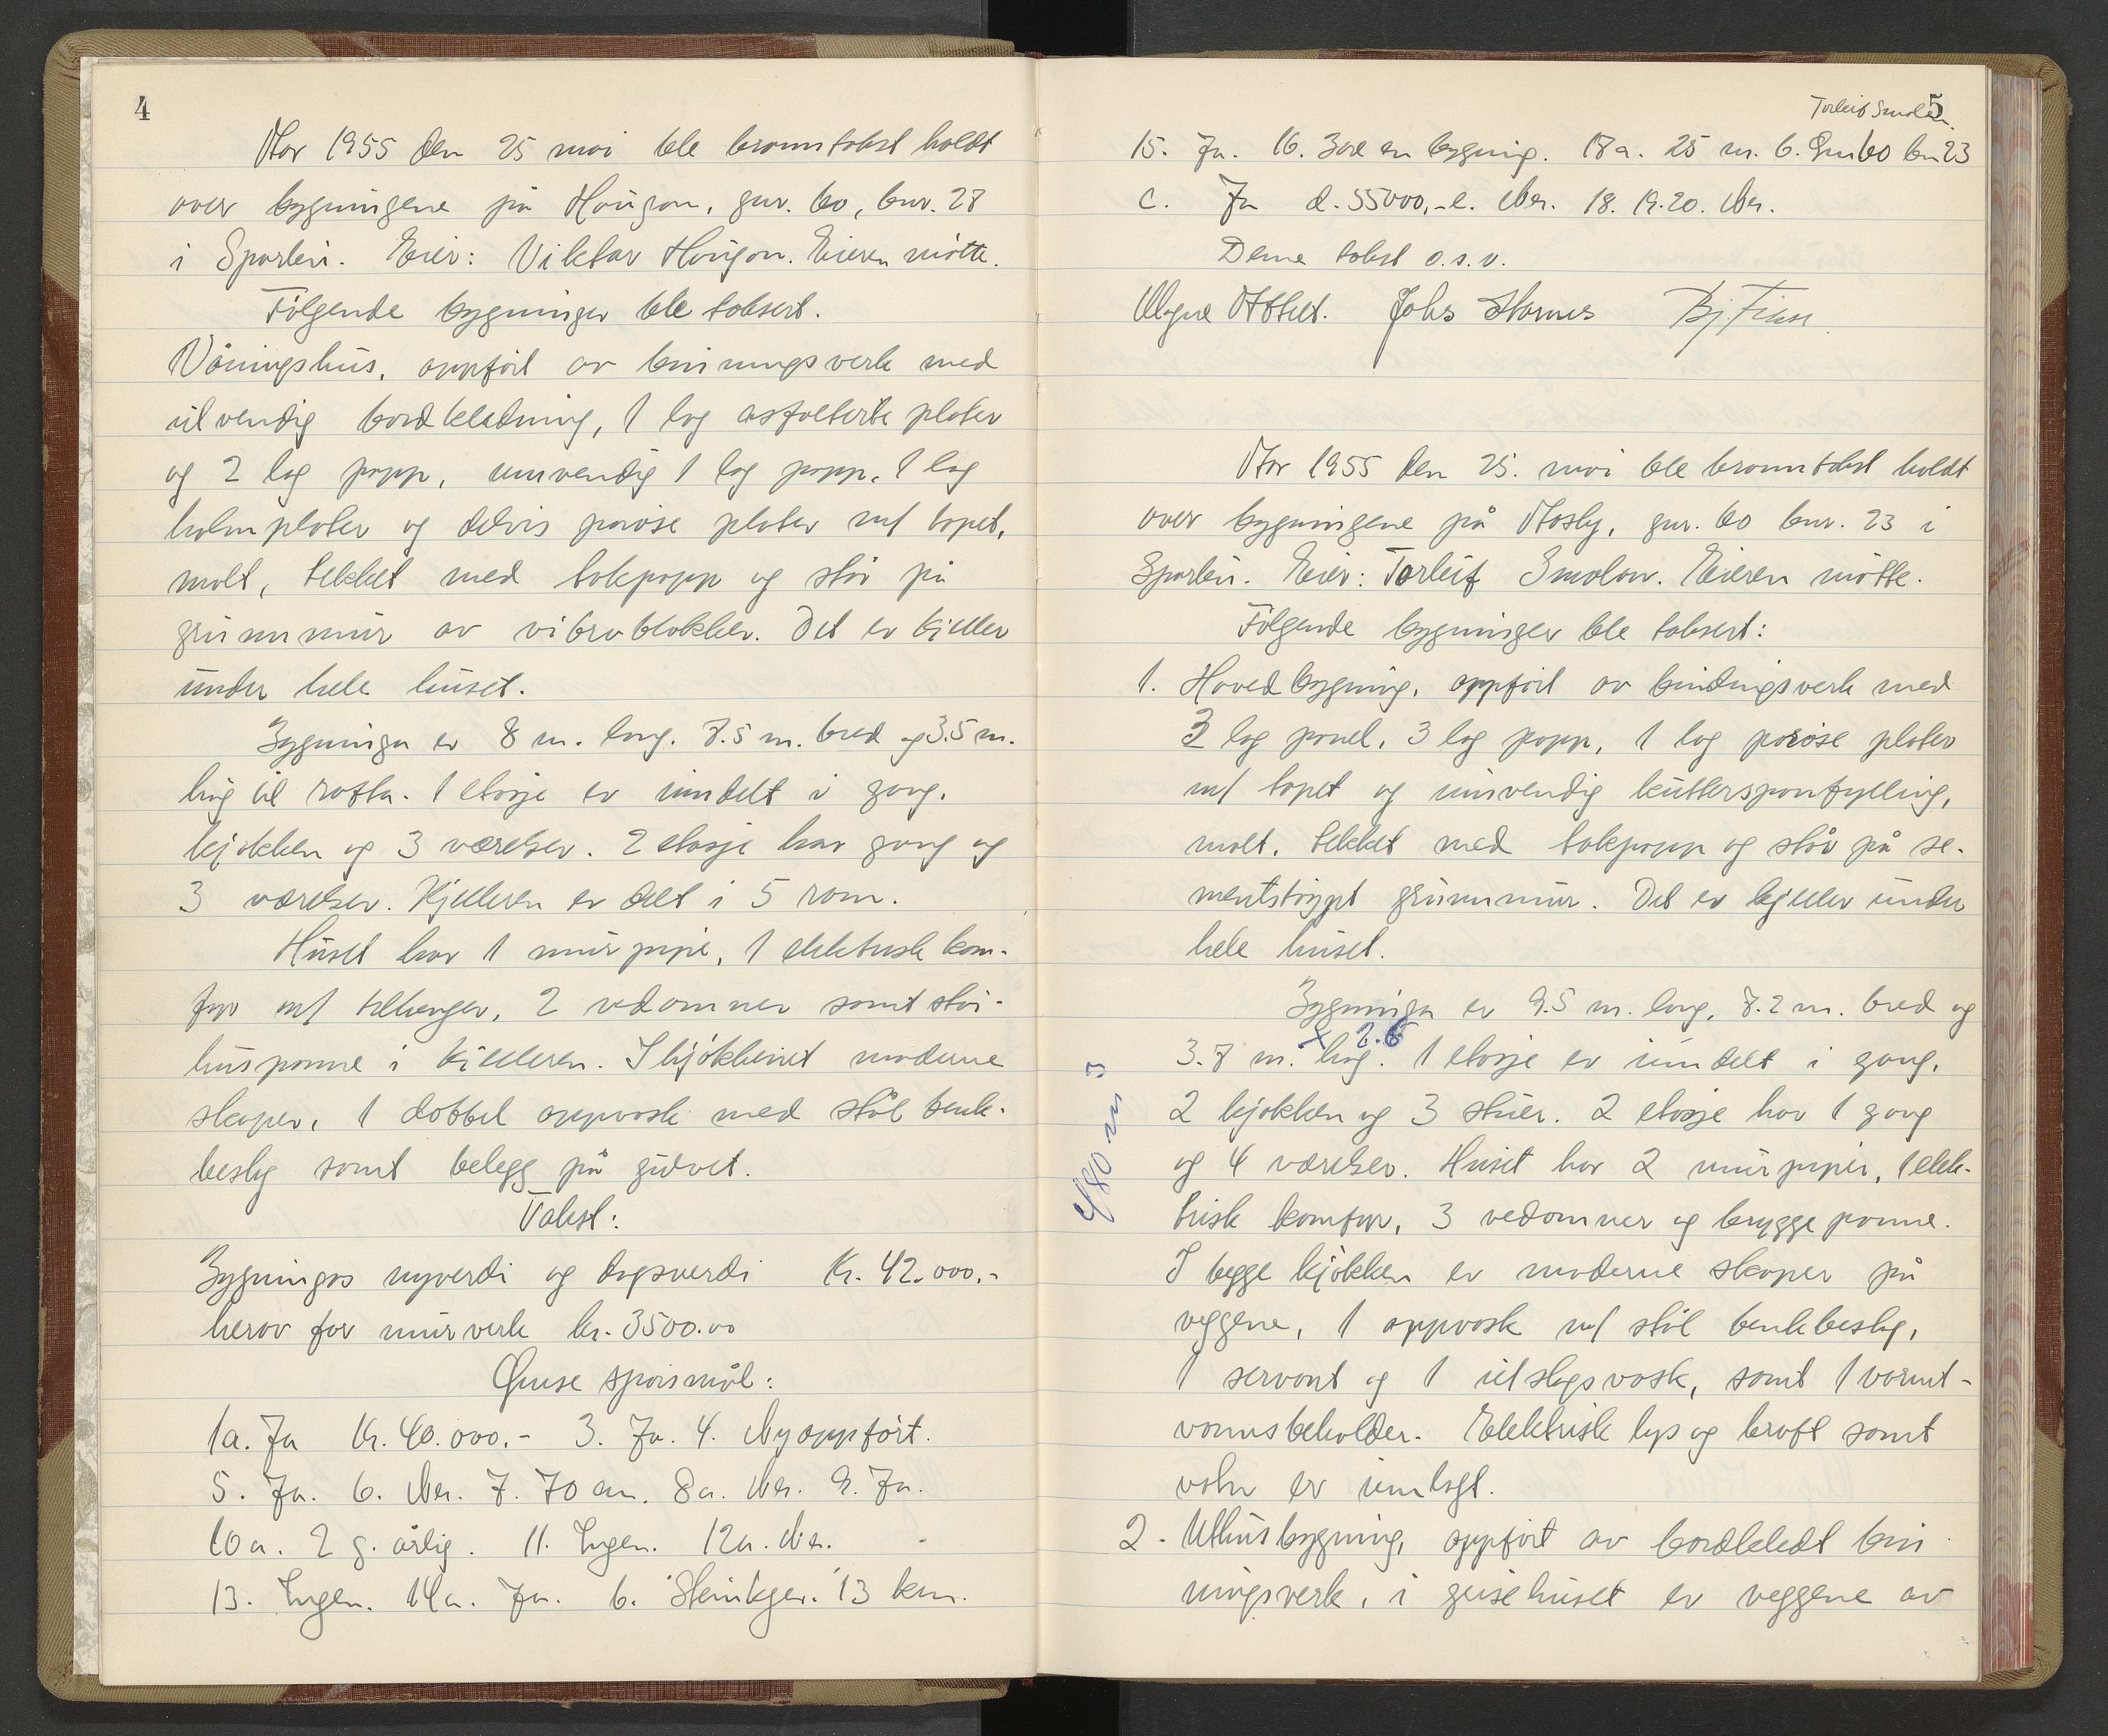 4
År 1955 den 25 mai ble branntakst holdt
over bygningene på Haugan, gnr. 60, bnr. 28
i Sparbu. Eier: Viktor Haugan. Eieren møtte.
Følgende bygninger ble taksert.
Våningshus, oppført av binningsverk med
utvendig bordkledning, 1 lag asfalterte plater
og 2 lag papp, innvendig 1 lag papp, 1 lag
halmplater og delvis porøse plater m/ tapet,
malt, tekket med takpapp og står på
grunnmur av vibroblokker. Det er kjeller
under hele huset.
Bygninga er 8 m. lang. 7.5 m. bred og 3.5 m.
høg til rafta. 1 etasje er inndelt i gang,
kjøkken og 3 værelser. 2 etasje har gang og
3 værelser. Kjelleren er delt i 5 rom.
Huset har 1 murpipe, 1 elektrisk kom-
fyr m/ tilhenger, 2 vedomner samt stor-
huspanne i kjelleren. I kjøkkenet moderne
skaper, 1 dobbel oppvask med stål benk-
beslag samt belegg på golvet.
Takst:
Bygningas nyverdi og dagsverdi Kr. 42.000,-
herav for murverk kr. 3500.00
Øvrige spørsmål:
1a. Ja Kr. 40.000.- 3. Ja. 4. Nyoppført.
5. Ja. 6. Nei. 7. 70 cm. 8a. Nei. 9. Ja.
10a. 2 g. årlig. 11. Ingen. 12a. Nei.
13. Ingen. 14a. Ja. b. Steinkjer. 13 km.
Torleif Smolan.
5
15. Ja. 16. Bare en bygning. 17a. 25 m. b. Gnr 60 bn 23
c. Ja d. 55000,- e. Nei. 18. 19. 20. Nei.
Denne takst o.s.v.
Magne Johs Stornes
År 1955 den 25. mai ble branntakst holdt
over bygningene på Åsly, gnr. 60 bnr. 23 i
Sparbu. Eier: Torleif Smolan. Eieren møtte.
Følgende bygninger ble taksert:
1. Hovedbygning, oppført av bindingsverk med
3 lag panel, 3 lag papp, 1 lag porøse plater
m/ tapet og innvendig kuttersponfylling,
malt, tekket med takpapp og står på se-
mentstøypt grunnmur. Det er kjeller under
hele huset.
Bygninga er 9.5 m. lang, 7.2 m. bred og
x 2.6
3.7 m. høg. 1 etasje er inndelt i gang,
480 m3
2 kjøkken og 3 stuer. 2 etasje har 1 gang
og 4 værelser. Huset har 2 murpiper, 1 elek-
trisk komfyr, 3 vedomner og bryggepanne.
I begge kjøkken er moderne skaper på
veggene, 1 oppvask m/ stål benkbeslag,
1 servant og 1 utslagsvask, samt 1 varmt-
vannsbeholder. Elektrisk lys og kraft samt
vatn er innlagt.
2. Uthusbygning, oppført av bordkledt bin
ningsverk, i grisehuset er veggene av